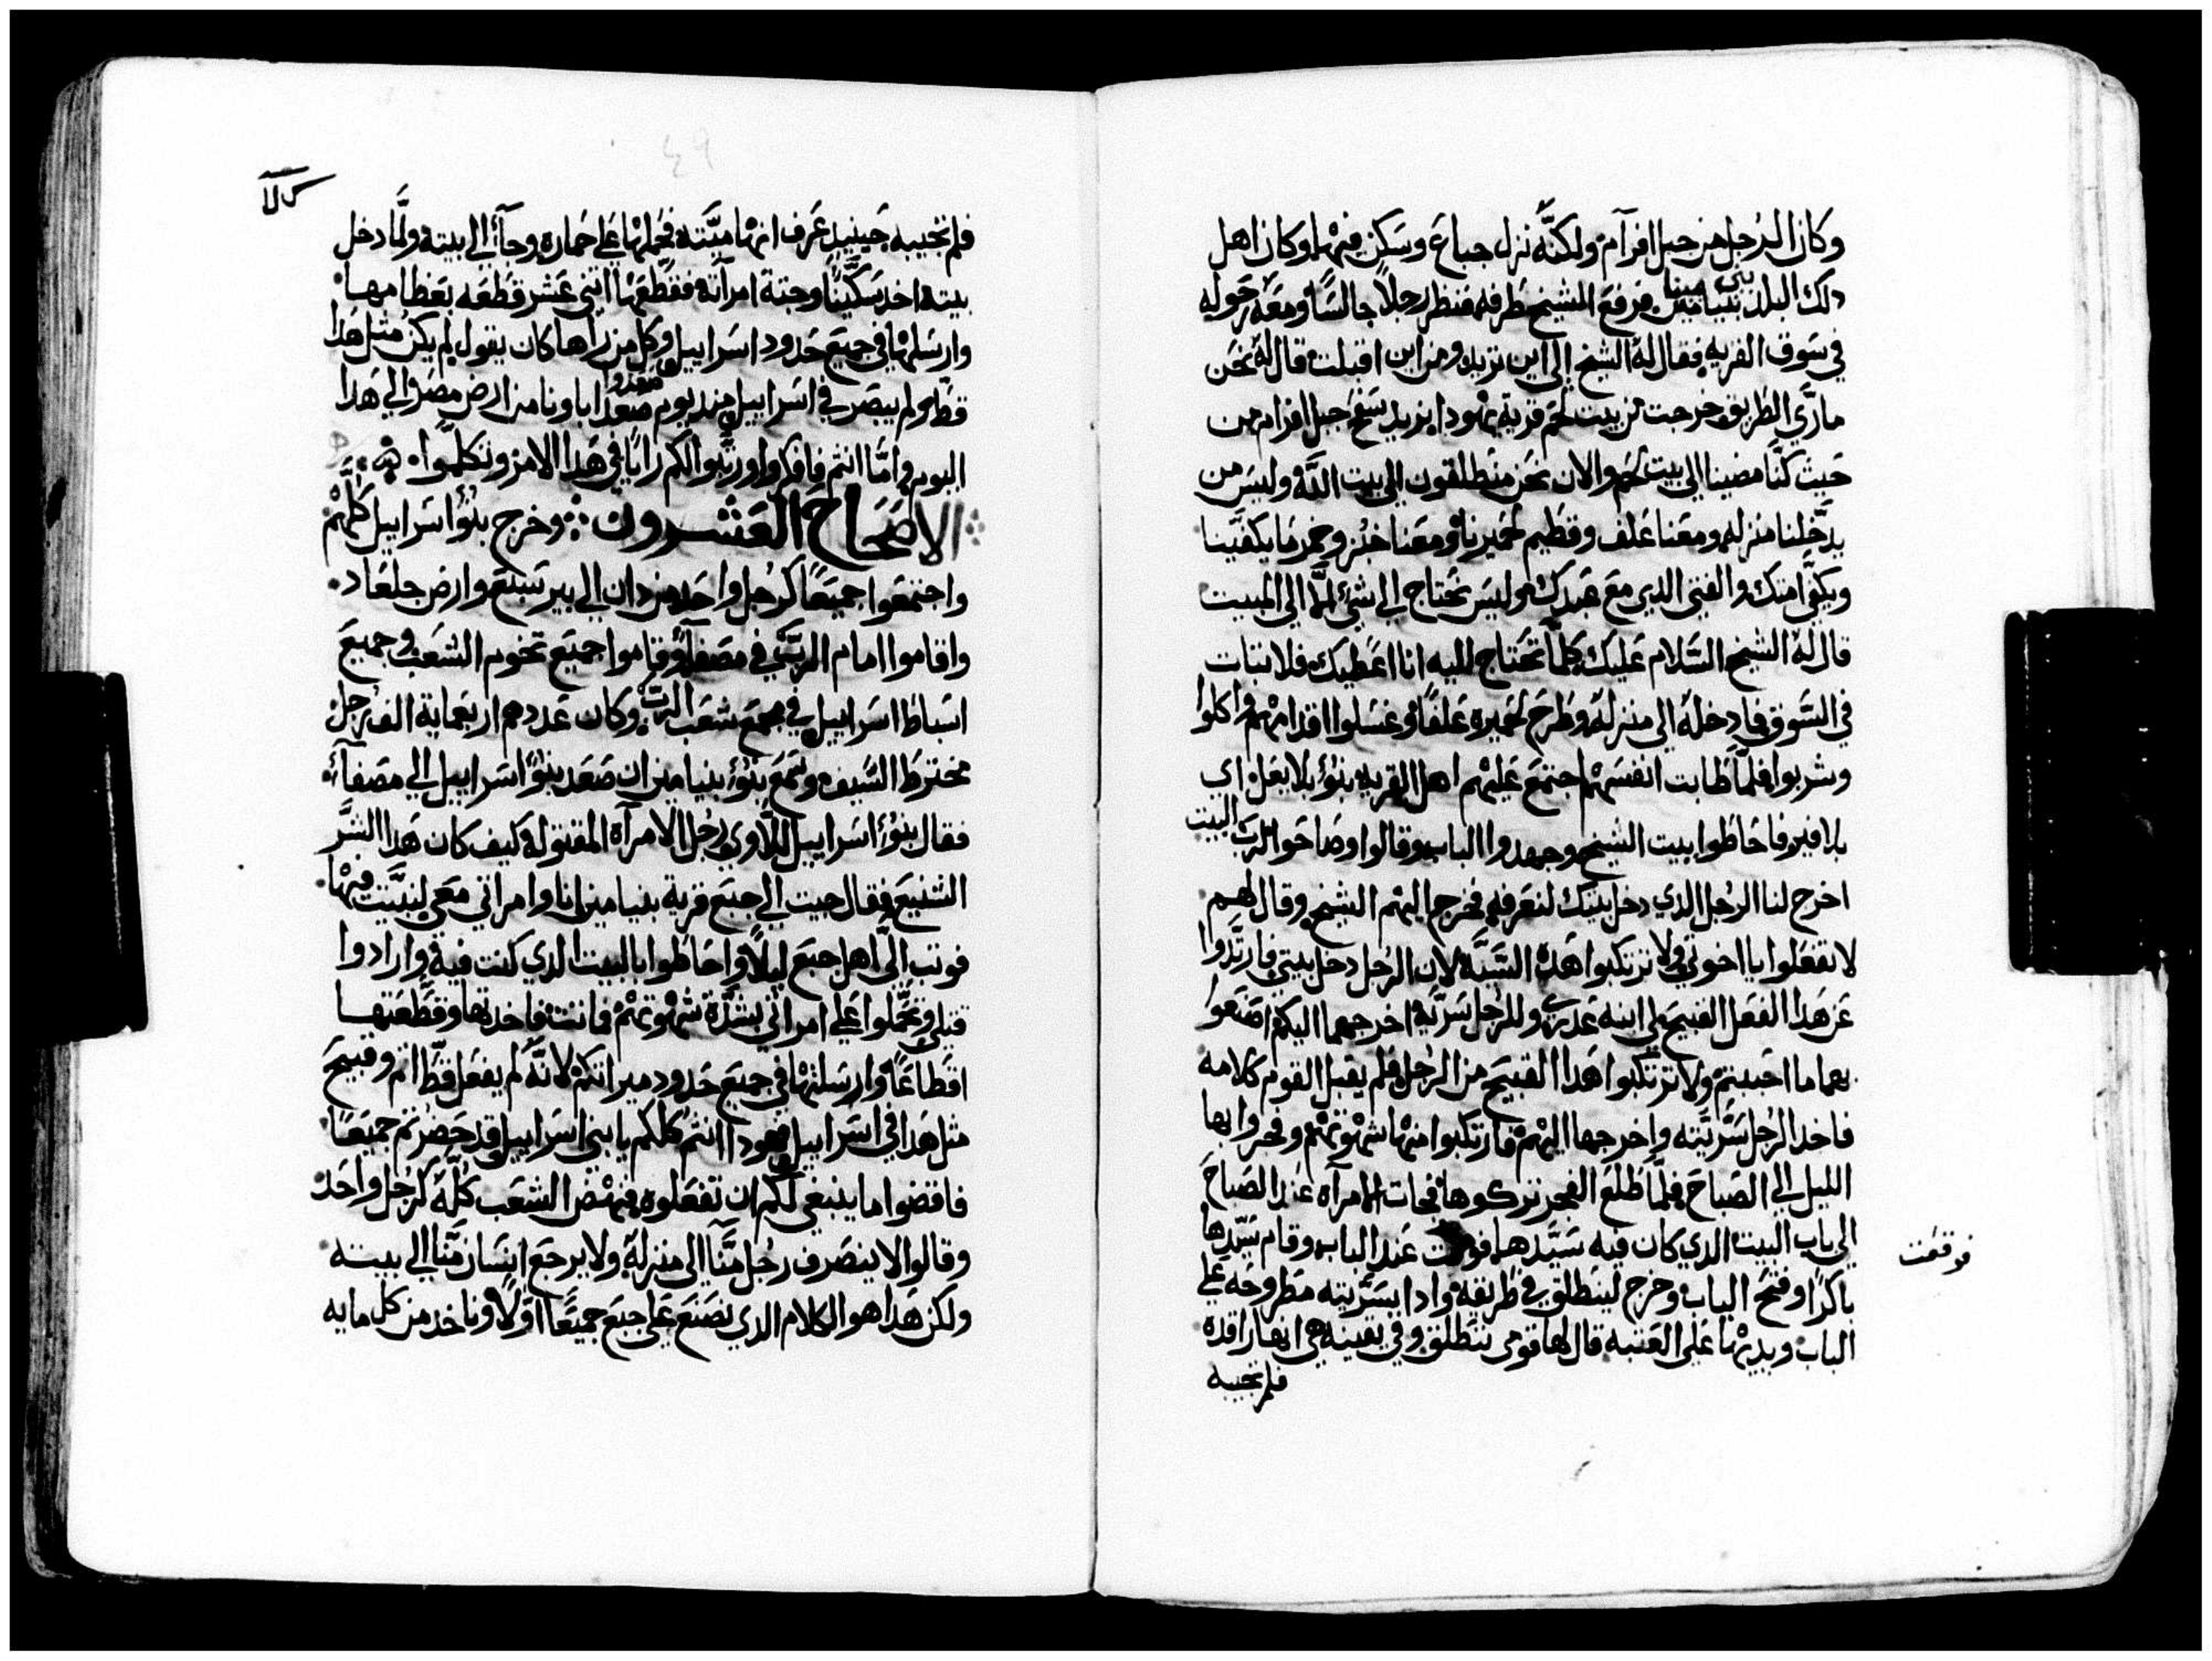 وكان الرجل من جبل افرآم ولكنّه نزل جباع وسكن فيها وكان اهل
دلك البلد بني بنيامين فرفع الشيخ طرفه فنظر رجلاً جالسًا ومعه حوله
في سوق القريه فقال لهُ الشيخ الي اين تريد ومن اين اقبلت قال له نحن
مارّي الطريق خرجت من بيت لحم قرية يهودا يزيد سفح جبل افرام من
حيث كنّا مضينا الي بيت لحم والان نحن منطلقون الي بيت اللّه وليس من
يدّخلنا منزله ومعنا علف وقطيم لحميرنا ومعنا خبز وخمر ما يكفّينا
ويكفّ امتك والفتي الدي مع عبدك وليس نحتاج الي شئ الّا الي المبيت
قال لهُ الشيخ السّلام عليك كلّما تحتاج اليه انا اعطيك فلا تبات
في السّوق فادخلهُ الي منزلهُ وطرح لحميره علفًا وغسلوا اقدامهم واكلوا
وشربوا فلمّا طابت انفسهم اجتمع عليهم اهل القريه بنوُ بلا بعل اي
بلا فير فاحاطوا ببيت الشيخ وجهدوا الباب وقالوا وصاحوا لرب البيت
اخرج لنا الرجل الدي دخل بيتك لنعرفه فخرج اليهم الشيخ وقال لهم
لا تفعلوا يا اخوتي ولا ترتكبوا هده السّيّه لان الرجل دخل بيتي فارتدّوا
عن هدا الفعل القبيح لي ابنه عدري وللرجل سرّيّه اخرجهما اليكم اصنعوا
بهما ما احببتم ولا ترتكبوا هدا القبيح من الرجل فلم يقبل القوم كلامه
فاخد الرجل سُرّيّته واخرجها اليهم فارتكبوا منها شهوتهم وفجروا بها
الليل الي الصباح فلمّا طلع الفجر تركوها فجات الامرآه عند الصّباح
الي باب البيت الدي كان فيه سيّدها عند الباب وقام سيّدها
فوقعت
باكرًا وفتح الباب وخرج لينطلق في طريقه وادا بسرّيته مطروحه علي
الباب ويديها علي العتبه قال لها قومي ننطلق وفي يقينه هي انها راقده
فلم تجيبه
كلا
فلم تجيبه حينيدٍ عرف انها ميّته فحملها علي حماره وجآ الي بيته ولمّا دخل
بيته اخد سكّينًا وجتة امرآته فقطّعها اتني عشر قطعه بعظامها
وارسلها في جميع حدود اسراييل وكل من راها كان يقول لم يكن متل هدا
قطّ ولم يبصر في اسراييل مند يوم صعدوا اباونا من ارض مصر والي هدا
اليوم وامّا انتم فافكروا ورتّبوا لكم رايًا في هدا الامر وتكلّموا
الاصحاح العشرون وخرج بنوُ اسراييل كلّهم
واجتمعوا جميعًا كرجل واحد من دان الي بير سبع وارض جلعاد
واقاموا امام الربّ في مصفا وقاموا جميع تخوم الشعب وجميع
اسباط اسراييل في مجمع شعب الرب وكان عددهم اربعماية الف رجل
مخترط السّيف وسمع بنوُ بنيامين ان صعد بنوُ اسراييل الي مصفآ
فقال بنوُ اسراييل للّاوي رجل الامرآه المقتوله كيف كان هدا الشّر
الشنيع فقال جيت الي جبع قرية بنيامين انا وامراتي معي لنبيّت فيها
فوتب اليّ اهل جبع ليلاً واحاطوا بالبيت الدي كنت فيه وارادوا
قتلي وتحمّلوا علي امراتي بشدّة شهوتهم فماتت فاخدتها وقطّعتها
اقطاعًا وارسلتها في جميع حدود ميراتكم لانّه لم يفعل قطّ اتم وقبيح
متل هدا في اسراييل فهودا انتم كلكم يا بني اسراييل قد حضرتم جميعًا
فاقضوا ما ينبغي لكم ان تفعلوه فنهض الشعب كلّه كرجل واحد
وقالوا لا ينصرف رجل منّا الي منزله ولا يرجع انسان منّا الي بيته
ولكن هدا هو الكلام الدي يصنع علي جبع جميعًا اوّلاً وناخد من كل مايه